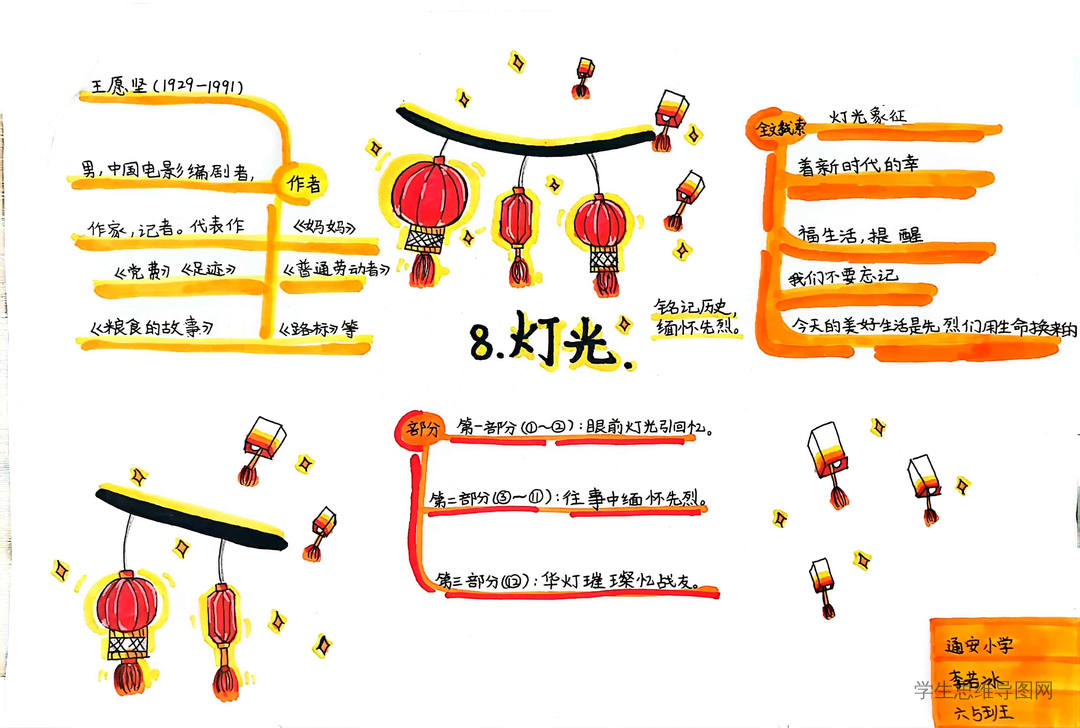 王愿坚(1929-1991)
男,中国电影编剧者,
作者
作家,记者。代表作《妈妈》
《党费》《足迹》《普通劳动者》
《粮食的故事》《路标》等
灯光象征
着新时代的幸
福生活,提醒
我们不要忘记
今天的美好生活是先烈们用生命换来的
铭记历史,
缅怀先烈。
8.灯光.
部分
第一部分(①~②):眼前灯光引回忆。
第二部分(③~⑪):往事中缅怀先烈。
第三部分(⑫):华灯璀璨忆战友。
通安小学
李若冰
六5班王
学生思维导图网